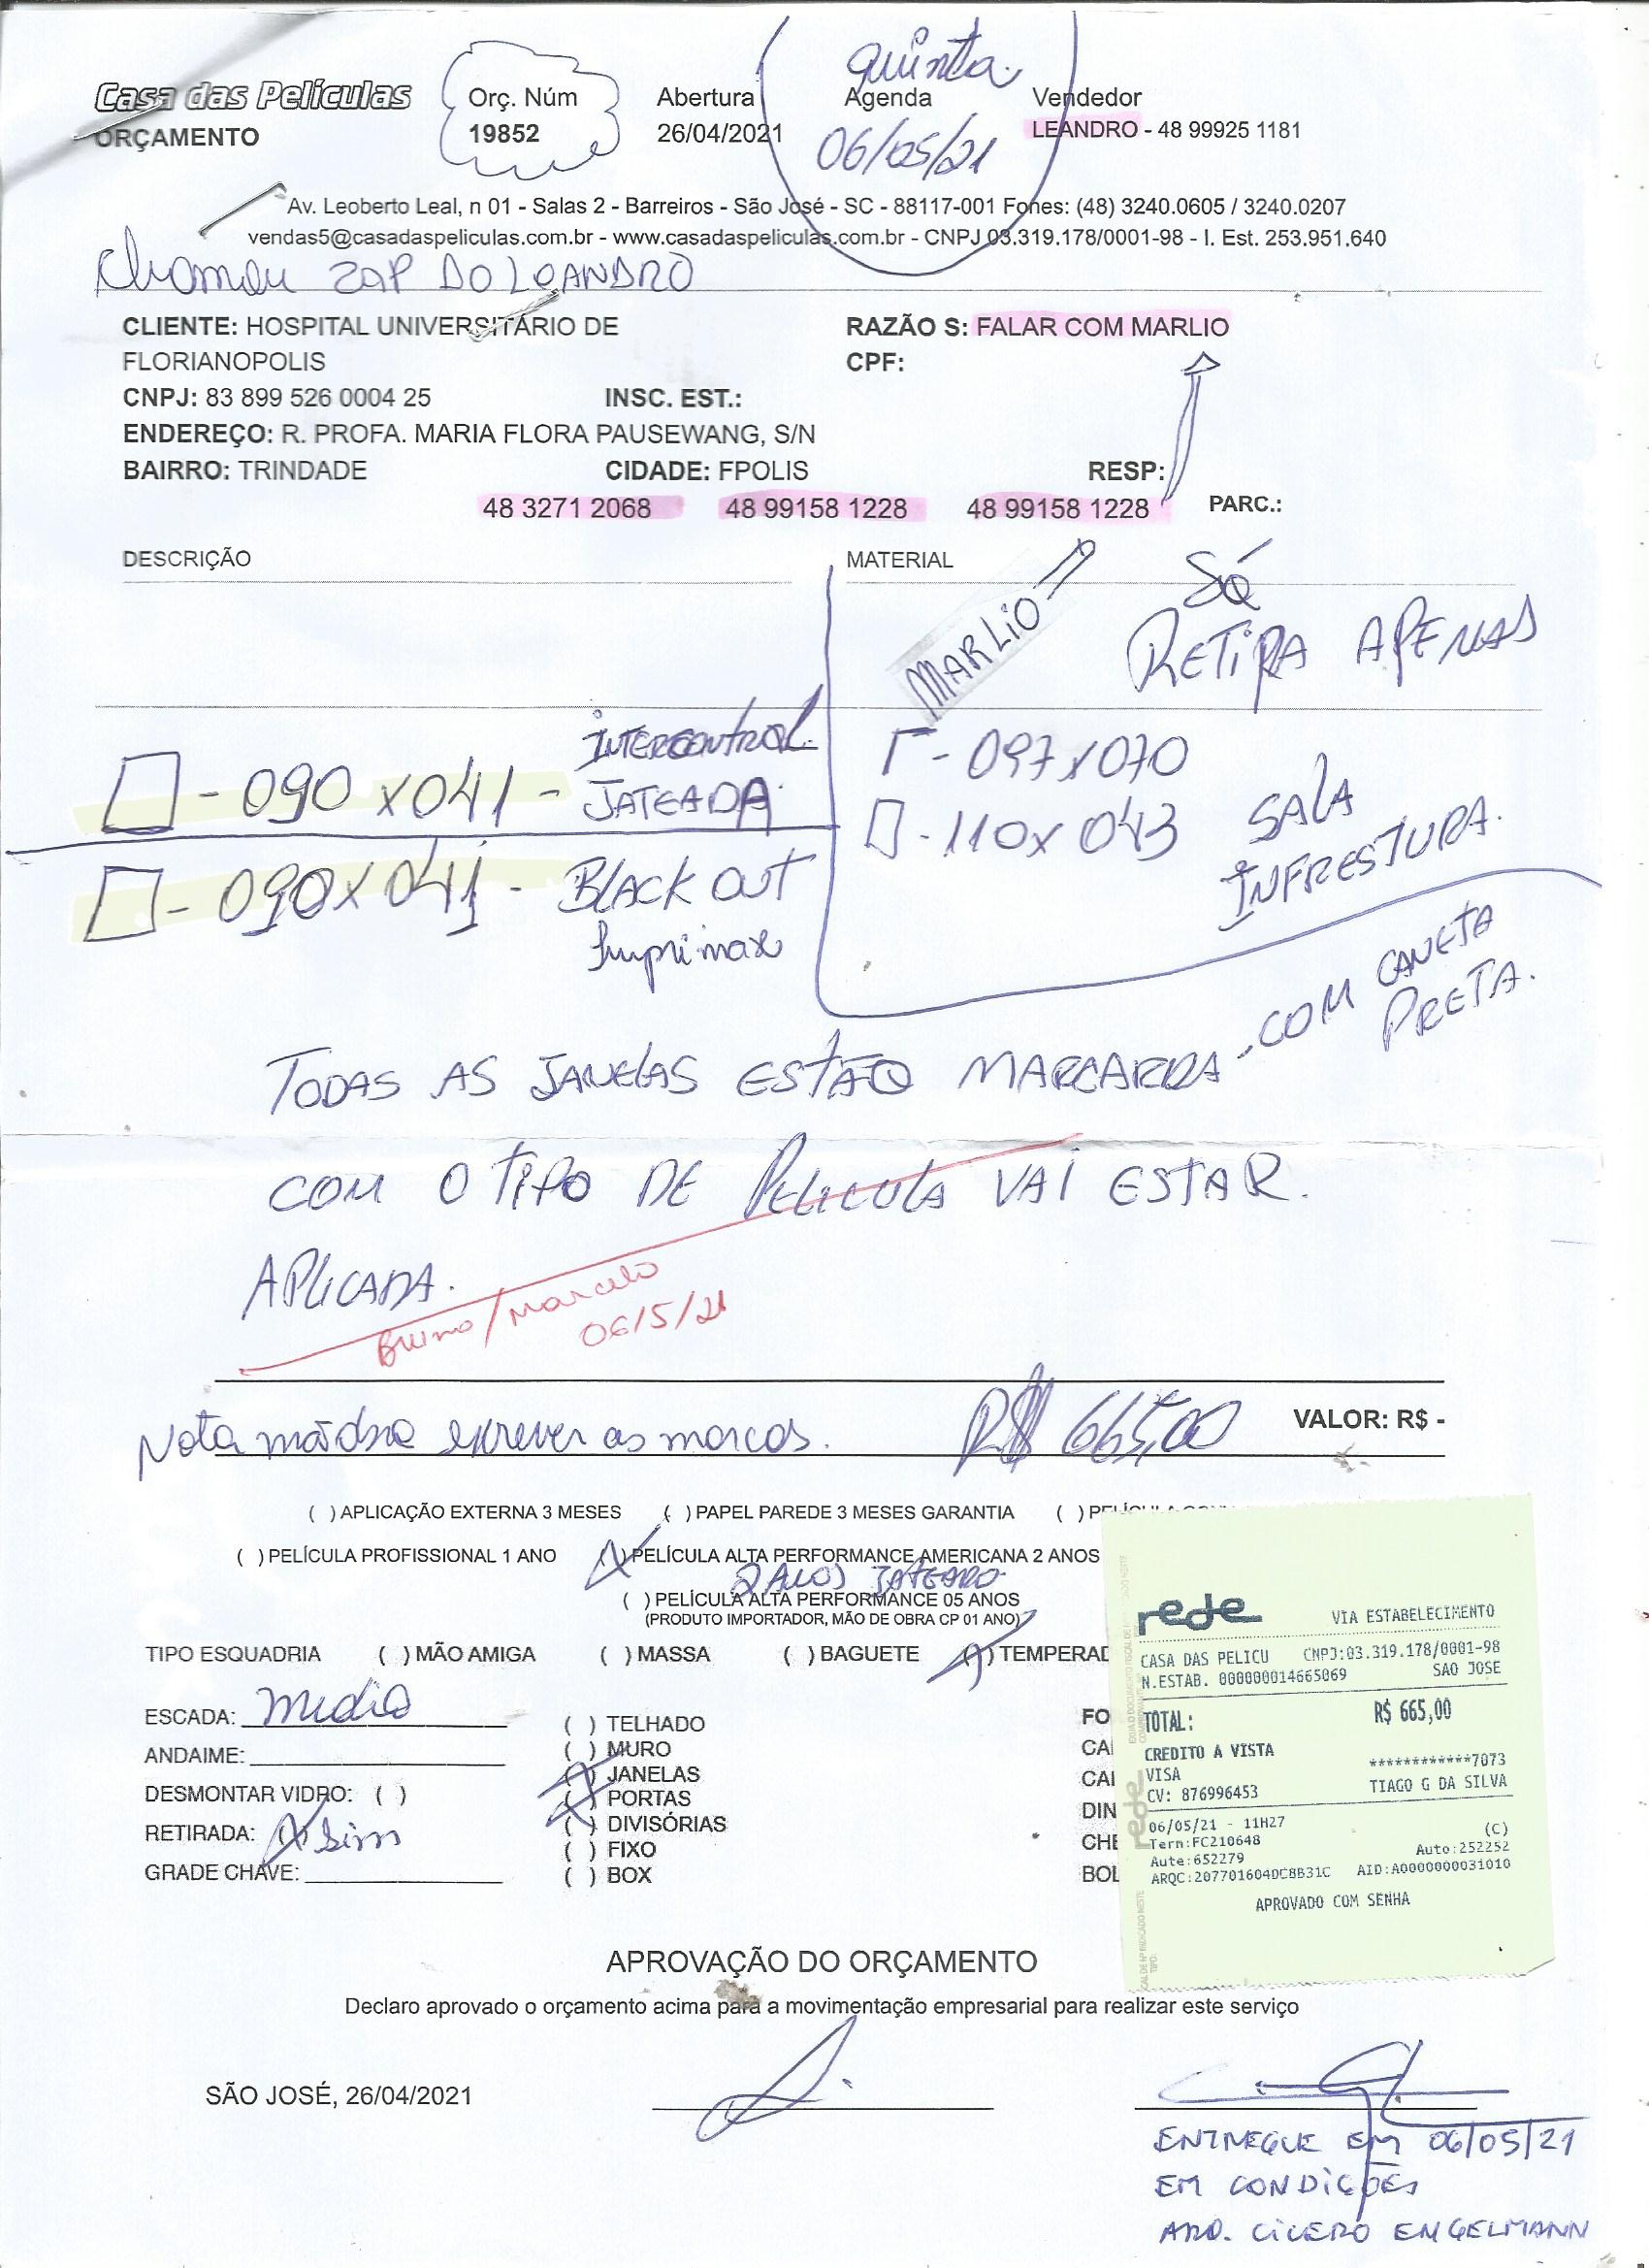 quinta
Casa das Películas
Orç. Núm
Abertura
Agenda
Vendedor
ORÇAMENTO
19852
26/04/2021
06/05/21
LEANDRO - 48 99925 1181
Av. Leoberto Leal, n 01 - Salas 2 - Barreiros - São José - SC - 88117-001 Fones: (48) 3240.0605 / 3240.0207
vendas5@casadaspeliculas.com.br - www.casadaspeliculas.com.br - CNPJ 03.319.178/0001-98 - I. Est. 253.951.640
ZAP DO LEANDRO
CLIENTE: HOSPITAL UNIVERSITÁRIO DE
FLORIANOPOLIS
RAZÃO S: FALAR COM MARLIO
CPF:
CNPJ: 83 899 526 0004 25
INSC. EST.:
ENDEREÇO: R. PROFA. MARIA FLORA PAUSEWANG, S/N
BAIRRO: TRINDADE
CIDADE: FPOLIS
RESP:
48 3271 2068
48 99158 1228
48 99158 1228
PARC.:
DESCRIÇÃO
MATERIAL
MARLIO
SÓ
RETIRA APENAS
INTERCONTROL
- 090 x 041 - JATEADA
- 090 x 041 - BLACK OUT
Imprimax
- 097 x 070
- 110 x 043
SALA
INFRESTURA.
TODAS AS JANELAS ESTÃO MARCARDA - COM CANETA
PRETA.
COM O TIPO DE PELICULA VAI ESTAR.
APLICADA.
Bruno / Marcelo
06/5/21
Nota escrever as marcas.
R$ 665,00
VALOR: R$ -
( ) APLICAÇÃO EXTERNA 3 MESES
( ) PAPEL PAREDE 3 MESES GARANTIA
( )
( ) PELÍCULA PROFISSIONAL 1 ANO
(X) PELÍCULA ALTA PERFORMANCE AMERICANA 2 ANOS
2 ANOS JATEADO
( ) PELÍCULA ALTA PERFORMANCE 05 ANOS
(PRODUTO IMPORTADOR, MÃO DE OBRA CP 01 ANO)
TIPO ESQUADRIA
( ) MÃO AMIGA
( ) MASSA
( ) BAGUETE
(X) TEMPERAD
ESCADA: media
ANDAIME:
DESMONTAR VIDRO: ( )
RETIRADA: (X) Sim
GRADE CHAVE:
( ) TELHADO
( ) MURO
(X) JANELAS
(X) PORTAS
( ) DIVISÓRIAS
( ) FIXO
( ) BOX
FO
CAI
CAI
DIN
CHE
BOL
rede
VIA ESTABELECIMENTO
CASA DAS PELICU CNPJ:03.319.178/0001-98
N.ESTAB. 000000014665069 SAO JOSE
TOTAL: R$ 665,00
CREDITO A VISTA
VISA ************7073
CV: 876996453 TIAGO G DA SILVA
06/05/21 - 11H27 (C)
Term:FC210648 Auto:252252
Aute:652279
ARQC:207701604DC8B31C AID:A0000000031010
APROVADO COM SENHA
APROVAÇÃO DO ORÇAMENTO
Declaro aprovado o orçamento acima para a movimentação empresarial para realizar este serviço
SÃO JOSÉ, 26/04/2021
ENTREGUE EM 06/05/21
EM CONDIÇÕES
ARQ. CÍCERO ENGELMANN